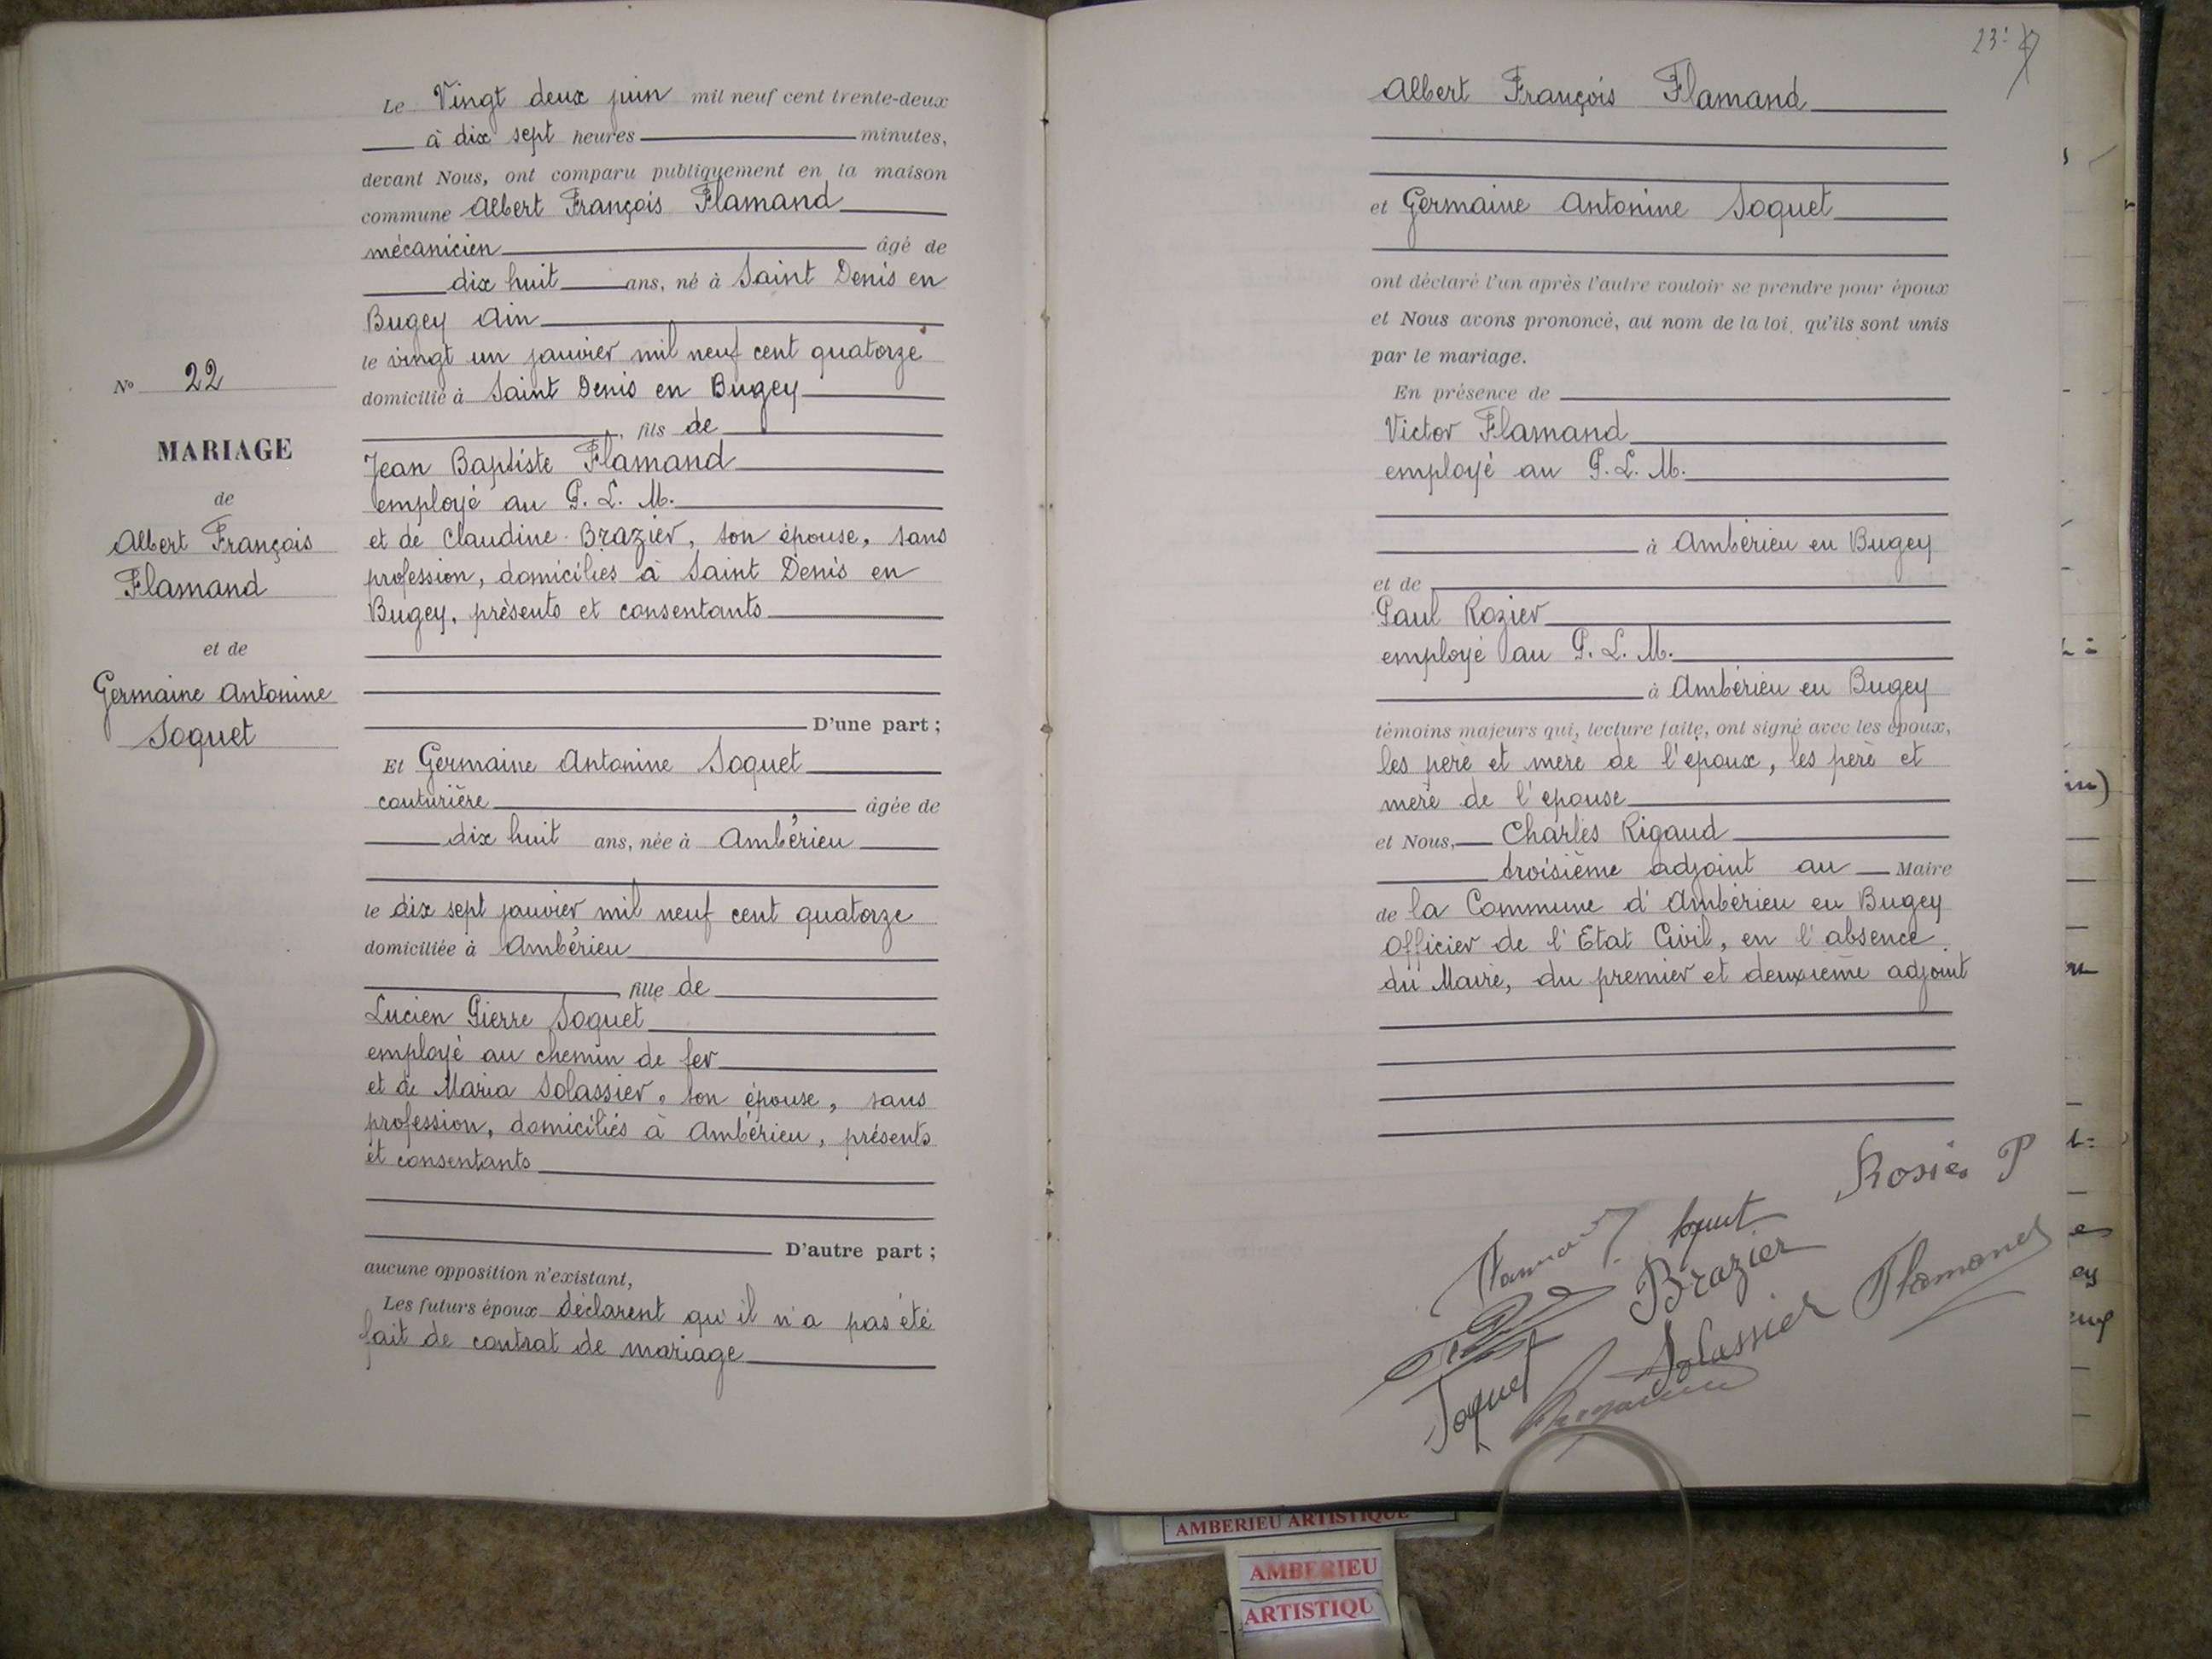 Le Vingt deux juin mil neuf cent trente-deux
à dix sept heures minutes,
devant Nous, ont comparu publiquement en la maison
commune Albert François Flamand
mécanicien âgé de
dix huit ans, né à Saint Denis en
Bugey Ain
le vingt un janvier mil neuf cent quatorze
domicilié à Saint Denis en Bugey
, fils de
Jean Baptiste Flamand
employé au P. L. M.
et de Claudine Brazier, son épouse, sans
profession, domiciliés à Saint Denis en
Bugey, présents et consentants
D'une part ;
Et Germaine Antonine Soquet
couturière âgée de
dix huit ans, née à Ambérieu
le dix sept janvier mil neuf cent quatorze
domiciliée à Ambérieu
, fille de
Lucien Pierre Soquet
employé au chemin de fer
et de Maria Solassier, son épouse, sans
profession, domiciliés à Ambérieu, présents
et consentants
D'autre part ;
aucune opposition n'existant,
Les futurs époux déclarent qu'il n'a pas été
fait de contrat de mariage
No 22
MARIAGE
de
Albert François
Flamand
et de
Germaine Antonine
Soquet
23
Albert François Flamand
et Germaine Antonine Soquet
ont déclaré l'un après l'autre vouloir se prendre pour époux
et Nous avons prononcé, au nom de la loi, qu'ils sont unis
par le mariage.
En présence de
Victor Flamand
employé au P. L. M.
à Ambérieu en Bugey
et de
Paul Rozier
employé au P. L. M.
à Ambérieu en Bugey
témoins majeurs qui, lecture faite, ont signé avec les époux,
les père et mère de l'époux, les père et
mère de l'épouse
et Nous, Charles Rigaud
troisième adjoint au Maire
de la Commune d'Ambérieu en Bugey
Officier de l'Etat Civil, en l'absence
du Maire, du premier et deuxième adjoint
Rosier P
Brazier
Flamand
Solassier
Soquet
AMBERIEU ARTISTIQUE
AMBERIEU
ARTISTIQU